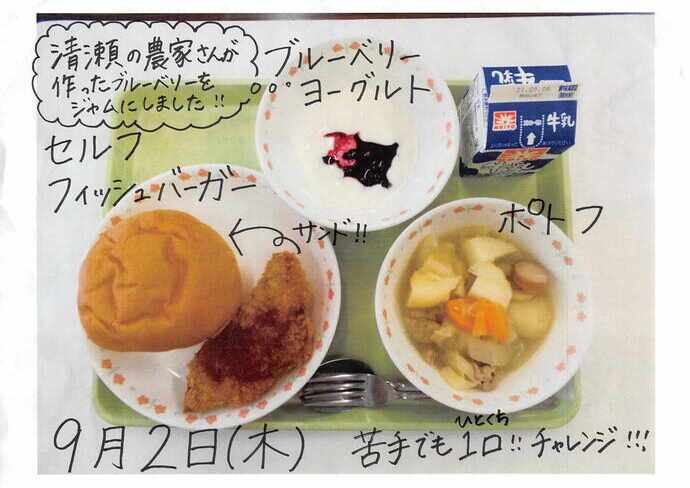 清瀬の農家さんが
作ったブルーベリーを
ジャムにしました!!
ブルーベリー
ヨーグルト
牛乳
セルフ
フィッシュバーガー
サンド!!
ポトフ
9月2日(木)
ひとくち
苦手でも1口!! チャレンジ!!!